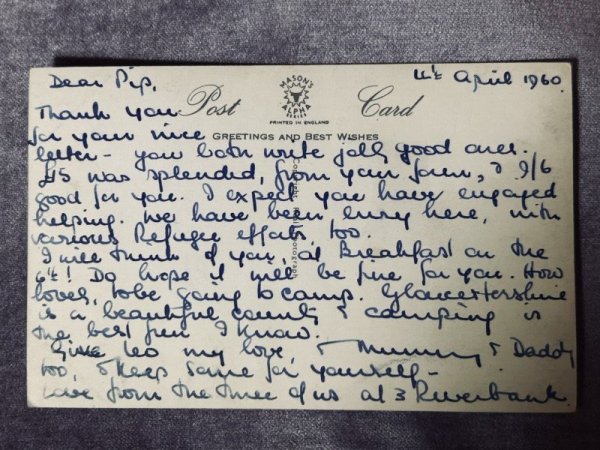 Dear Pip,
4th April 1960.
Thank you
Post Card
MASON'S
ALPHA
SERIES
PRINTED IN ENGLAND
for your nice
GREETINGS AND BEST WISHES
letter - you both write jolly good ones.
£5 was splendid, from your town, & 9/6
good for you. I expect you have enjoyed
helping. We have been busy here, with
various Refugee efforts, too.
I will think of you, at Breakfast on the
6th! Do hope it will be fine for you. How
lovely, to be going to camp. Gloucestershire
is a beautiful county & camping is
the best fun I know.
Give Leo my love, & Mummy & Daddy
too, & keep some for yourself -
Love from the three of us at 3 Riverbank.
Copyright Photograph